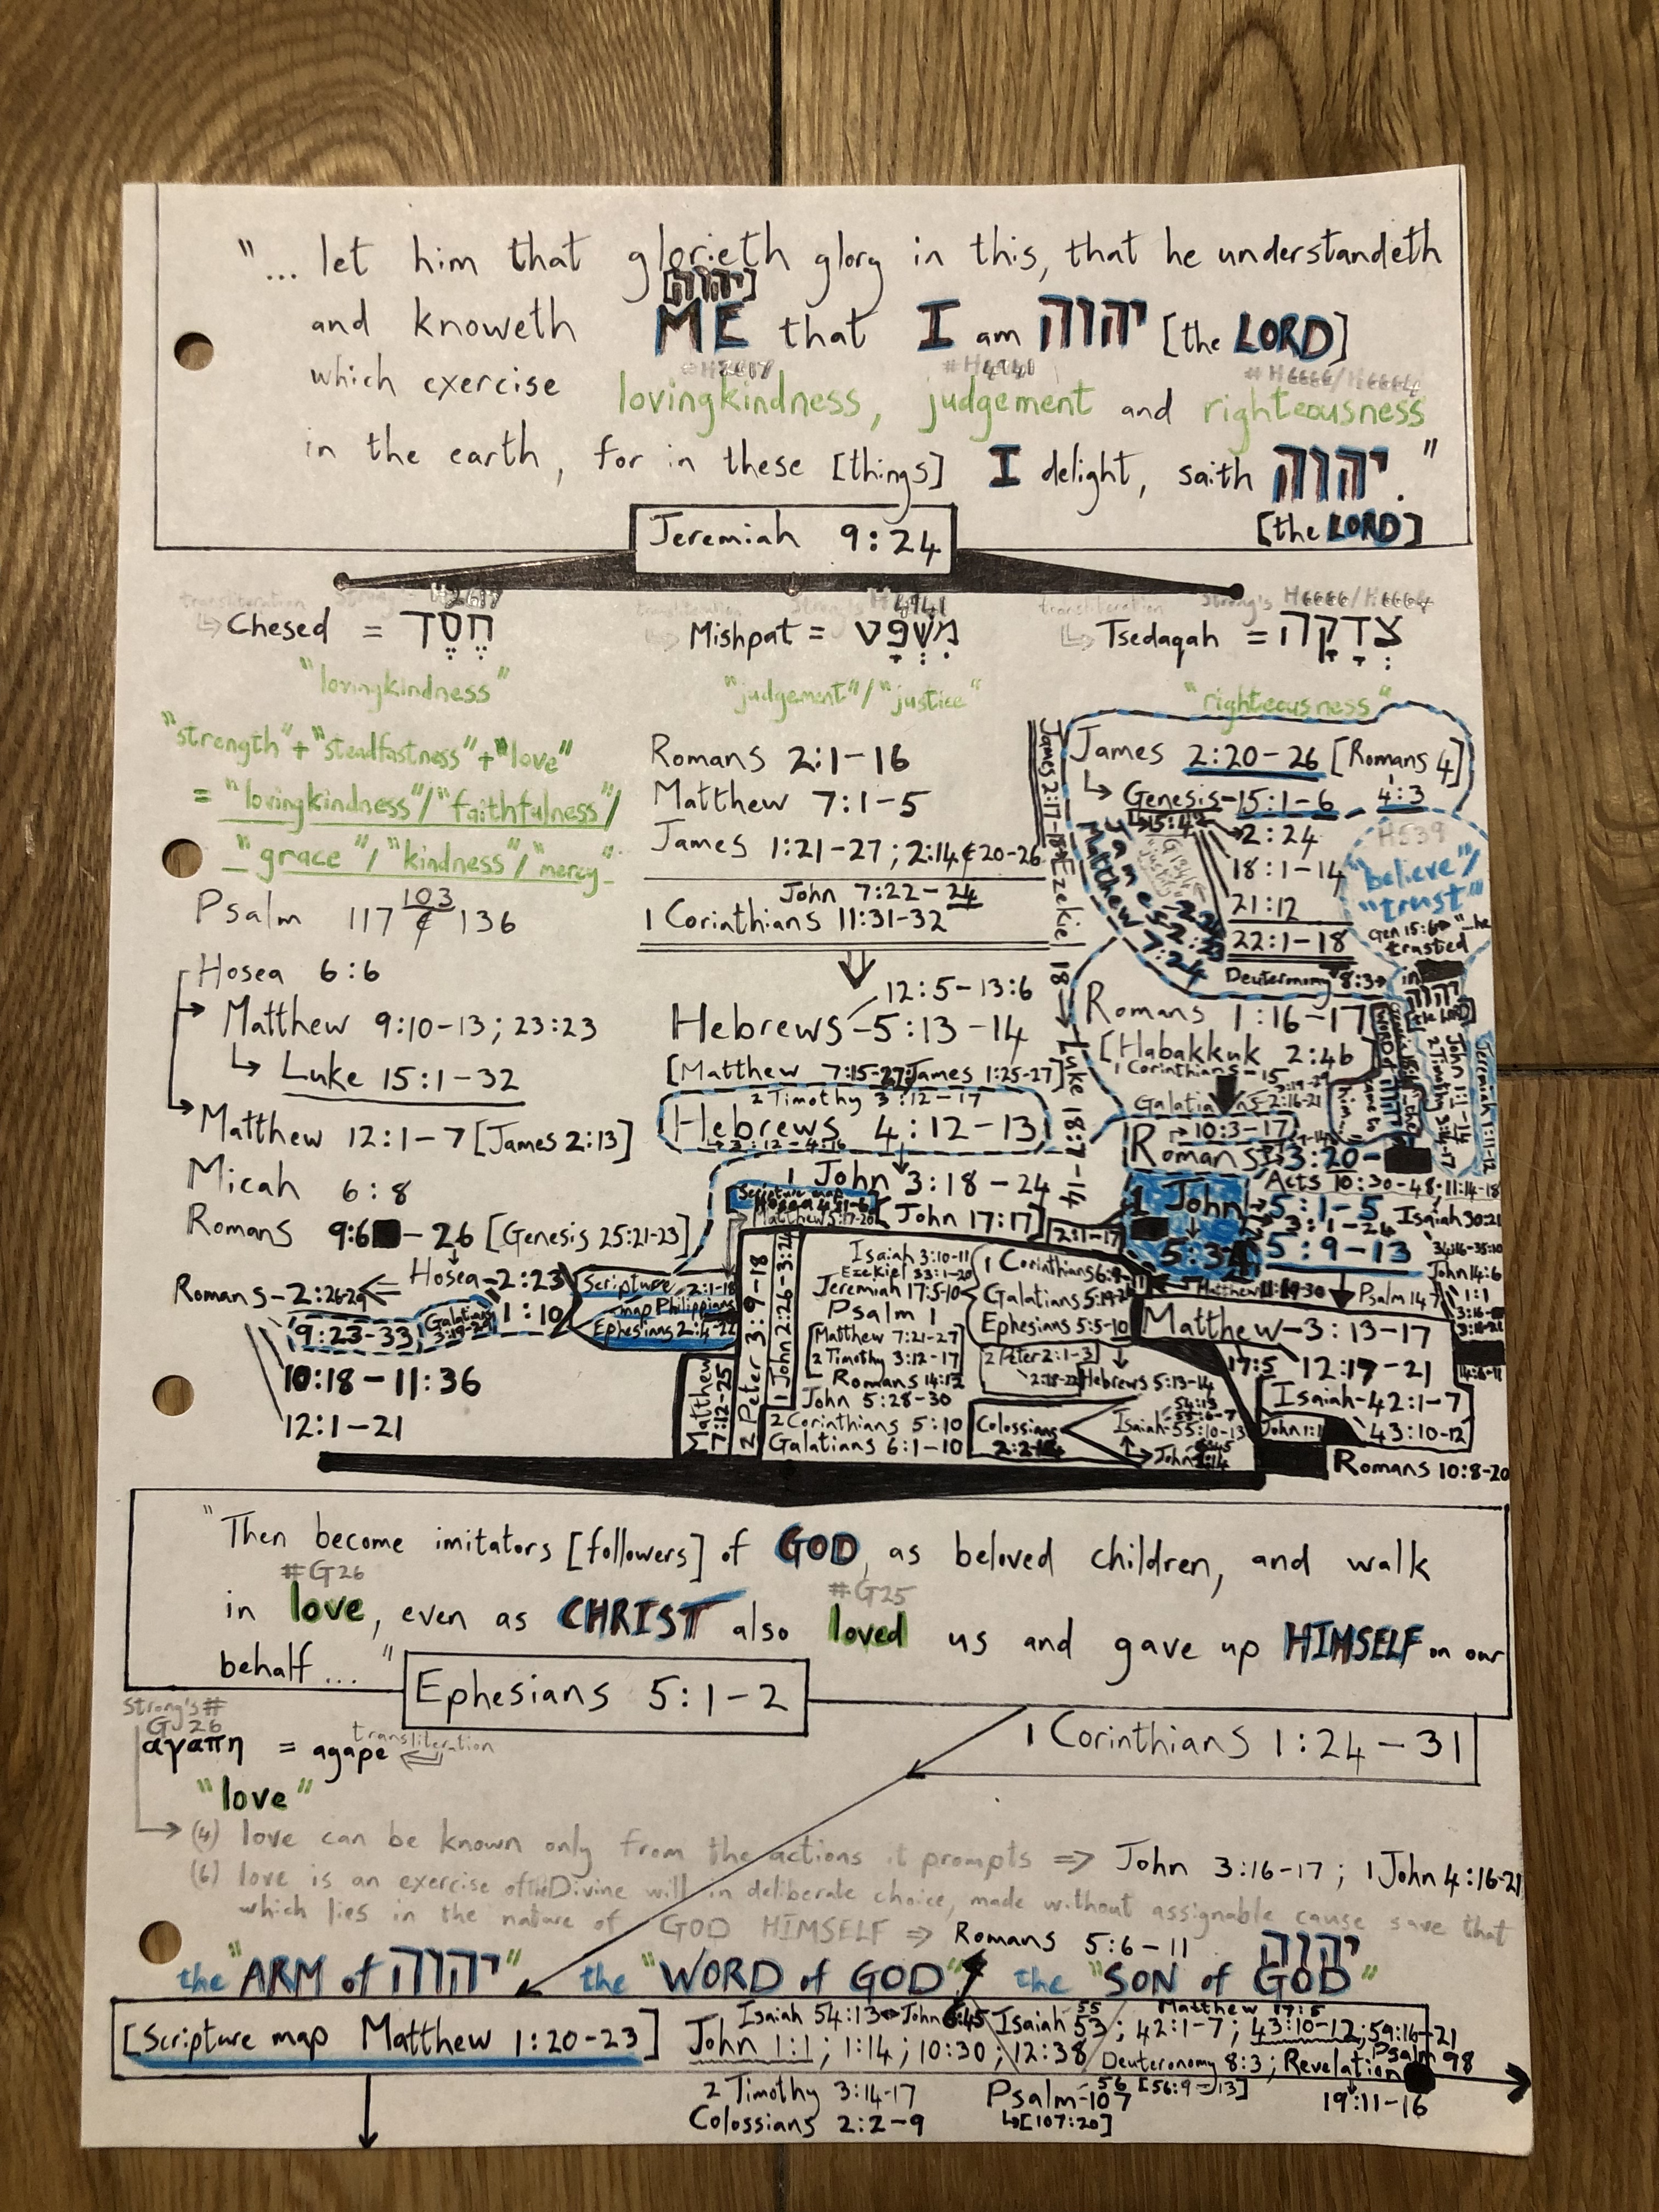 "... let him that glorieth glory in this, that he understandeth
[יהוה]
and knoweth ME that I am יהוה [the LORD]
#H2617 #H4941 #H6666/H6664
which exercise lovingkindness, judgement and righteousness
in the earth, for in these [things] I delight, saith יהוה."
[the LORD]
Jeremiah 9:24
transliteration Strong's H2617
Chesed = חֶסֶד
"lovingkindness"
"strength" + "steadfastness" + "love"
= "lovingkindness"/"faithfulness"/
"grace"/"kindness"/"mercy"
Psalm 117 103 & 136
Hosea 6:6
Matthew 9:10-13; 23:23
Luke 15:1-32
Matthew 12:1-7 [James 2:13]
Micah 6:8
Romans 9:6 - 26 [Genesis 25:21-23]
Romans-2:26-29 Hosea-2:23
9:23-33 Galatians 3:19-29 1:10
10:18-11:36
12:1-21
Scripture 2:1-18
map Philippians
Ephesians 2:4-22
transliteration Strong's H4941
Mishpat = מִשְׁפָּט
"judgement"/"justice"
Romans 2:1-16
Matthew 7:1-5
James 1:21-27; 2:14&20-26
John 7:22-24
1 Corinthians 11:31-32
12:5-13:6
Hebrews-5:13-14
[Matthew 7:15-27; James 1:25-27]
2 Timothy 3:12-17
Hebrews 4:12-13
3:12-4:16
1 John 3:18-24
Scripture map
Matthew 5:17-20 [John 17:17]
2:1-17
James 2:17-18
Ezekiel 18
Luke 18:7-14
Matthew 7:12-25
2 Peter 3:9-18
1 John 2:26-3:24
Isaiah 3:10-11
Ezekiel 33:1-20
Jeremiah 17:5-10
Psalm 1
[Matthew 7:21-27
2 Timothy 3:12-17]
Romans 14:12
John 5:28-30
2 Corinthians 5:10
Galatians 6:1-10
1 Corinthians 6:9-11
Galatians 5:19-26
Ephesians 5:5-10
2 Peter 2:1-3
2:18-22 Hebrews 5:13-14
Colossians
54:13
Isaiah-55:10-13
transliteration Strong's H6666/H6664
Tsedaqah = צְדָקָה
"righteousness"
James 2:20-26 [Romans 4]
Genesis-15:1-6 4:3
15:4 2:24
18:1-14
21:12
22:1-18
Deuteronomy 8:3
H539
"believe"/
"trust"
Gen 15:6 "...he
trusted
in
יהוה
[the LORD]
Romans 1:16-17
[Habakkuk 2:4b
1 Corinthians-15
Galatians 2:16-21
10:3-17
Romans-3:20-
John 1:1-14
2 Timothy 3:14-17
Jeremiah 1:11-12
Acts 10:30-48; 11:14-18
1 John 5:1-5
3:1-24 Isaiah 30:21
5:3 5:9-13 34:16-35:10
John 14:6
Matthew 11:19-30 Psalm 147
1:1
Matthew-3:13-17
17:5 12:17-21
Isaiah-42:1-7
John 1:1 43:10-12
Romans 10:8-20
"Then become imitators [followers] of GOD, as beloved children, and walk
#G26 #G25
in love, even as CHRIST also loved us and gave up HIMSELF on our
behalf..."
Ephesians 5:1-2
1 Corinthians 1:24-31
Strong's #
G26
αγαπη = agape transliteration
"love"
(4) love can be known only from the actions it prompts ⇒ John 3:16-17; 1 John 4:16-21
(6) love is an exercise of the Divine will in deliberate choice, made without assignable cause save that
which lies in the nature of GOD HIMSELF ⇒ Romans 5:6-11
יהוה
the "ARM of יהוה" the "WORD of GOD" the "SON of GOD"
[Scripture map Matthew 1:20-23]
Isaiah 54:13 John 6:45 Isaiah 53 55; 42:1-7; 43:10-12; 59:16-21
Matthew 17:5
John 1:1; 1:14; 10:30; 12:38 Deuteronomy 8:3; Revelation Psalm 98
19:11-16
2 Timothy 3:14-17
Colossians 2:2-9
Psalm-107 56 [56:9-13]
[107:20]